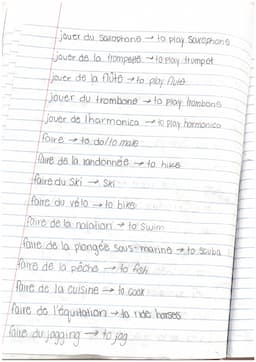 jouer du saxophone → to play saxophone
jouer de la trompette → to play trumpet
jouer de la flûte → to play flute
jouer du trombone → to play trombone
jouer de l'harmonica → to play harmonica
faire → to do/to make
faire de la randonnée → to hike
faire du ski → ski
faire du vélo → to bike
faire de la natation → to swim
faire de la plongée sous-marine → to scuba
faire de la pêche → to fish
faire de la cuisine → to cook
faire de l'équitation → to ride horses
faire du jogging → to jog